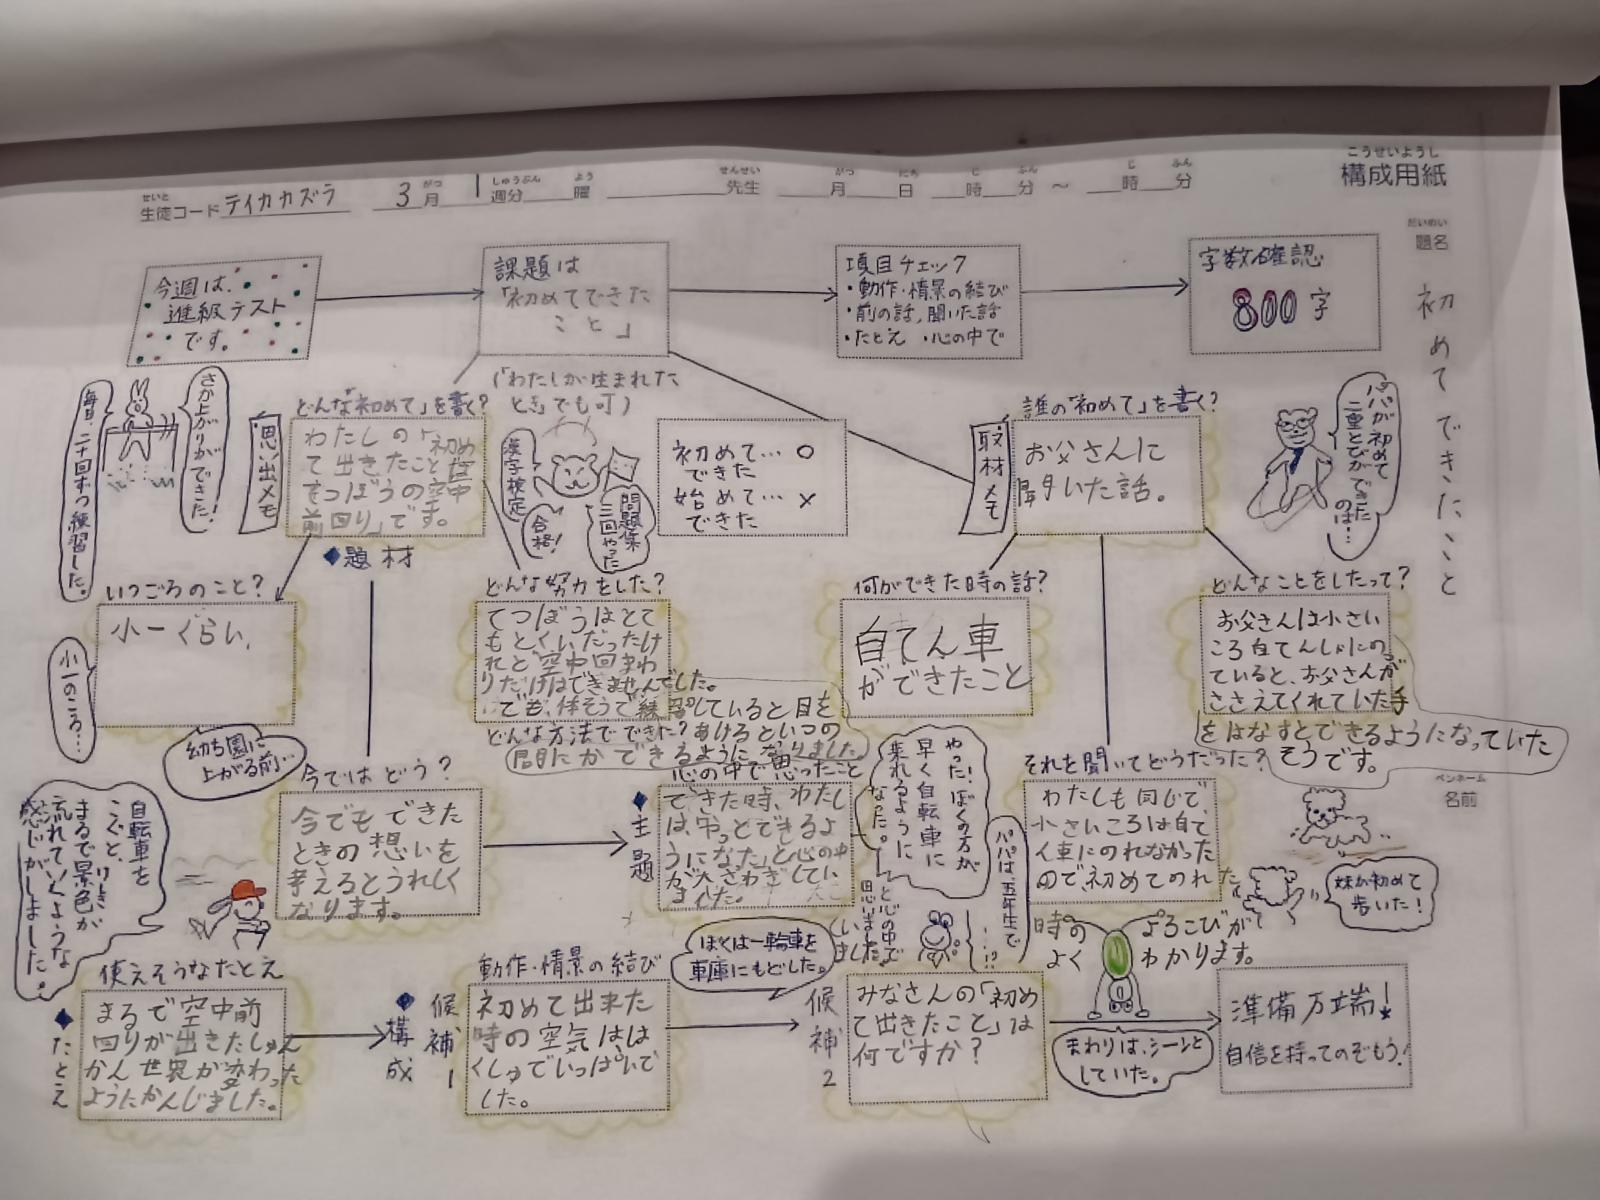 構成用紙
こうせいようし
生徒コード テイカカズラ 3月 1週分 曜 先生 月 日 時 分 ～ 時 分
せいと がつ しゅうぶん よう せんせい がつ にち じ ふん じ ふん
だいめい
題名
初めてできたこと
ペンネーム
名前
今週は、
進級テスト
です。
課題は
「初めてできた
こと」
項目チェック
・動作・情景の結び
・前の話,聞いた話
・たとえ ・心の中で
字数確認
800字
(「わたしが生まれた
とき」でも可)
さか上がりができた!
毎日、二十回ずつ練習した。
思い出メモ
どんな「初めて」を書く?
わたしの「初め
て出きたこと は
てつぼうの空中
前回り」です。
◆題材
漢字検定
合格!
問題集
三回やった
初めて…○
できた
始めて…×
できた
取材メモ
誰の「初めて」を書く?
お父さんに
聞いた話。
パパが初めて
二重とびができた
のは…
いつごろのこと?
小一ぐらい、
小一のころ…
どんな努力をした?
てつぼうはとて
もとくいだったけ
れど空中回まわ
りだけはできませんでした。
でも、体そうで練習していると目を
どんな方法でできた?
あけるといつの
間にかできるようになりました。
何ができた時の話?
自てん車
ができたこと
どんなことをしたって?
お父さんは小さい
ころ自てんしゃにの
っていると、お父さんが
ささえてくれていた手
をはなすとできるようになっていた
そうです。
幼ち園に
上がる前…
今ではどう?
今でもできた
ときの想いを
考えるとうれしく
なります。
◆主題
心の中で思ったこと
できた時、わたし
は、「やっとできるよ
うになった」と心の中
が大さわぎしてい
ました。
やった!ぼくの方が
早く自転車に
乗れるように
なった。
と心の中で
思いました。
パパは五年生で
…!?
それを聞いてどうだった?
わたしも同じで、
小さいころは自て
ん車にのれなかった
ので初めてのれた
時の よろこびが
よく わかります。
妹が初めて
歩いた!
自転車を
こぐと、
まるで景色が
けしき
流れていくような
感じがしました。
使えそうなたとえ
◆たとえ
まるで空中前
回りが出きたしゅん
かん世界が変わった
ようにかんじました。
◆構成
候補1
動作・情景の結び
初めて出来た
時の空気はは
くしゅでいっぱいで
した。
ぼくは一輪車を
車庫にもどした。
候補2
みなさんの「初め
て出きたこと」は
何ですか?
まわりは、シーンと
していた。
準備万端!
自信を持ってのぞもう!